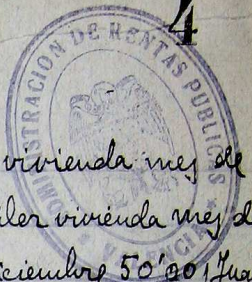 4
ADMINISTRACION DE RENTAS PUBLICAS
VALENCIA
vivienda mes de
ler vivienda mes d
iciembre 50'00, Jua